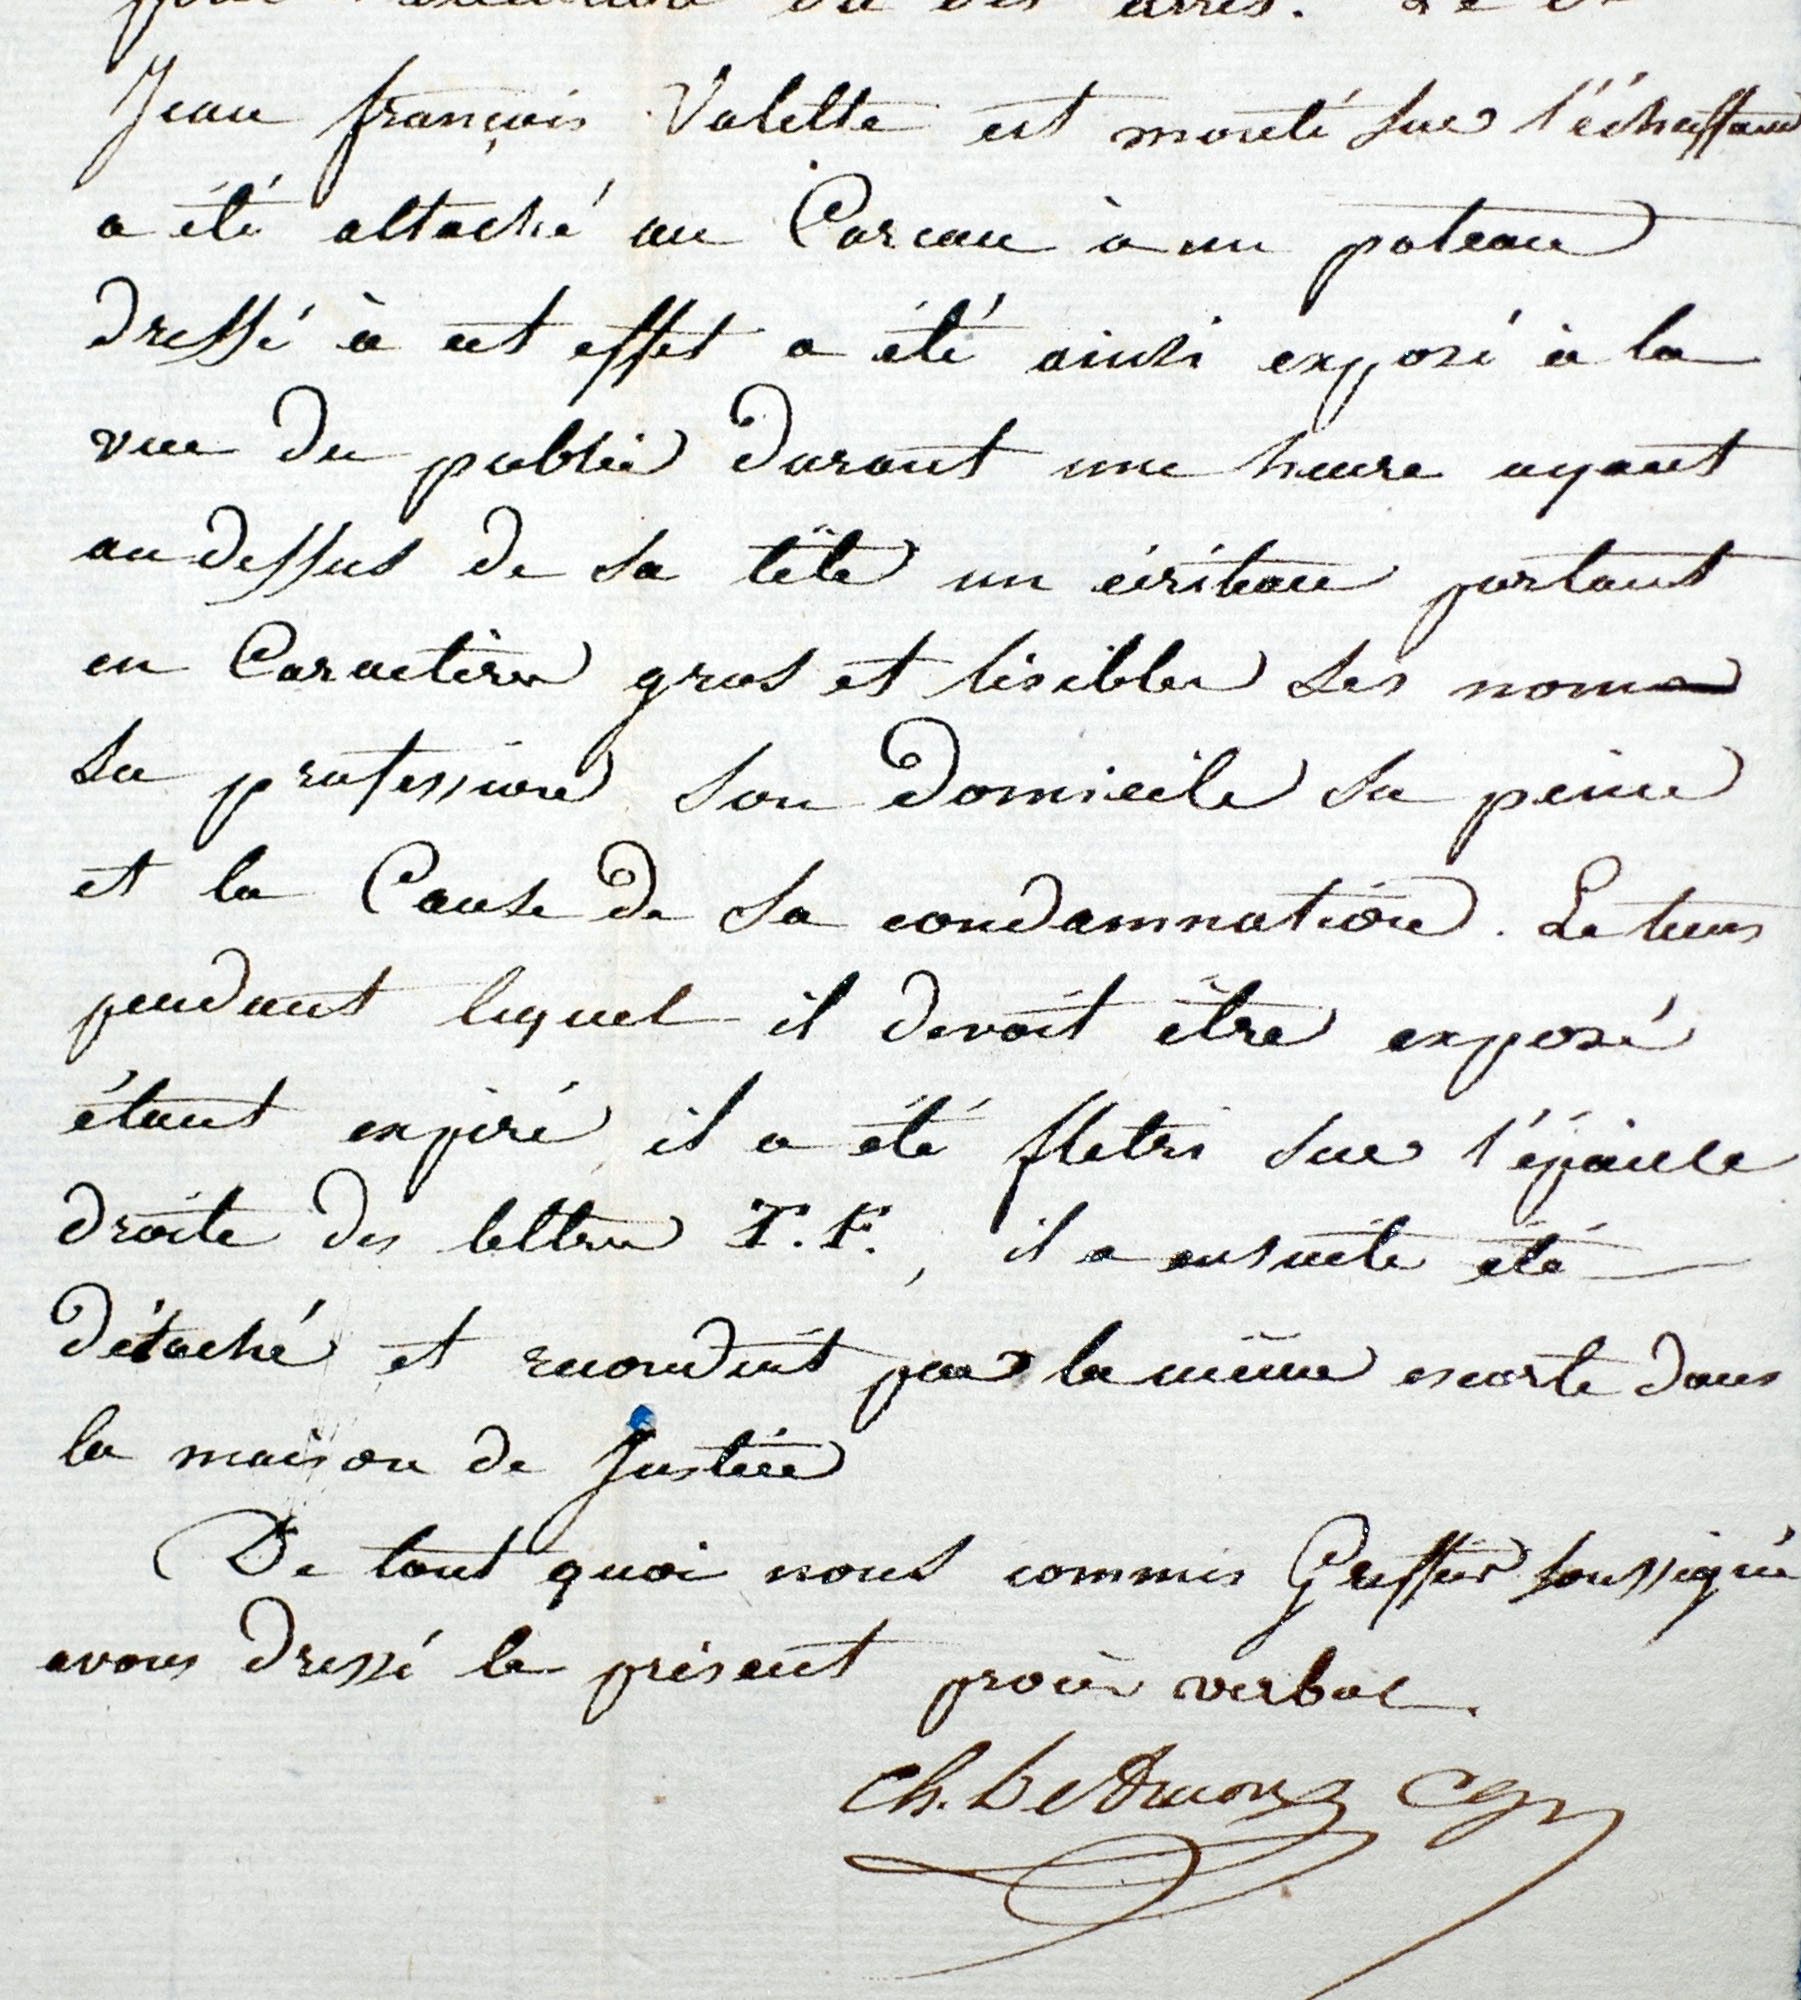 pour l'exécution du des arrêt. Le d.
Jean françois Valette est monté sur l'échaffaud
a été attaché au Carcan à un poteau
dressé à cet effet a été ainsi exposé à la
vue du public durant une heure ayant
au dessus de sa tête un écriteau portant
en Caractères gros et lisibles ses noms
sa profession son domicile sa peine
et la Cause de sa condamnation. Le tems
pendant lequel il devoit être exposé
étant expiré il a été fletri sur l'épaule
droite des lettres T.F., il a ensuite été
détaché et reconduit par la même escorte dans
la maison de Justice
De tout quoi nous commis Greffier soussigné
avons dressé le présent procès verbal.
Ch.